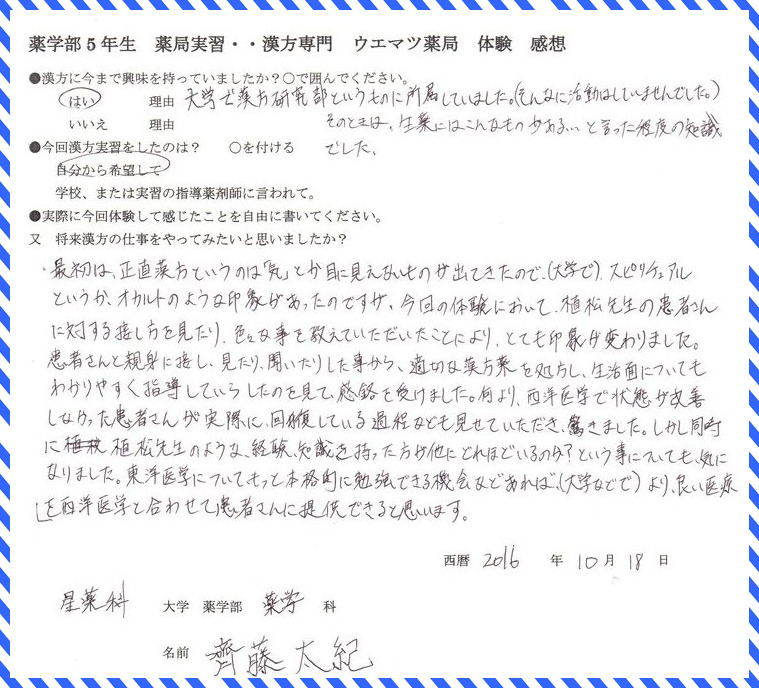 薬学部5年生　薬局実習・・漢方専門　ウエマツ薬局　体験　感想
●漢方に今まで興味を持っていましたか？○で囲んでください。
はい　理由　大学で漢方研究部というものに所属していました。(そんなに活動はしていませんでした。)
いいえ　理由　そのときは、生薬にはこんなものがある…と言った程度の知識
●今回漢方実習をしたのは？　○を付ける　でした、
自分から希望して
学校、または実習の指導薬剤師に言われて。
●実際に今回体験して感じたことを自由に書いてください。
又　将来漢方の仕事をやってみたいと思いましたか？
・最初は、正直漢方というのは「気」とか目に見えないものが出てきたので、(大学で)、スピリチュアル
というか、オカルトのような印象があったのですが、今回の体験において、植松先生の患者さん
に対する接し方を見たり、色々な事を教えていただいたことにより、とても印象が変わりました。
患者さんと親身に接し、見たり、聞いたりした事から、適切な漢方薬を処方し、生活面についても
わかりやすく指導していらしたのを見て、感銘を受けました。何より、西洋医学で状態が改善
しなかった患者さんが実際に、回復している過程なども見せていただき、驚きました。しかし同時
に植松先生のような、経験、知識を持った方が他にどれほどいるのか？という事についても、気に
なりました。東洋医学についてもっと本格的に勉強できる機会などあれば、(大学などで)より、良い医療
を西洋医学と合わせて患者さんに提供できると思います。
西暦 2016 年 10月 18 日
星薬科　大学　薬学部　薬学　科
名前　齊藤 太紀